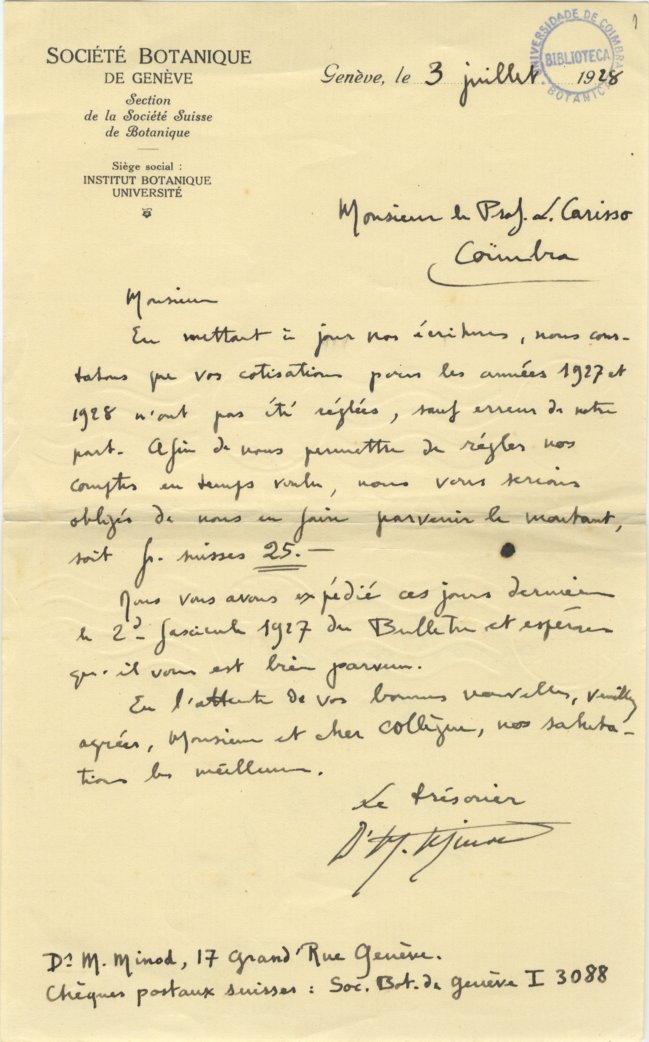 SOCIÉTÉ BOTANIQUE
DE GENÈVE
Section
de la Société Suisse
de Botanique
Siège social :
INSTITUT BOTANIQUE
UNIVERSITÉ
UNIVERSIDADE DE COIMBRA
BIBLIOTECA
BOTANICA
Genève, le 3 juillet 1928
Monsieur le Prof. L. Carisso
Coïmbra
Monsieur
En mettant à jour nos écritures, nous cons-
tatons que vos cotisations pour les années 1927 et
1928 n'ont pas été réglées, sauf erreur de notre
part. Afin de nous permettre de régler nos
comptes en temps voulu, nous vous serions
obligés de nous en faire parvenir le montant,
soit fr. suisses 25.—
Nous vous avons expédié ces jours derniers
le 2d fascicule 1927 du Bulletin et espérons
qu'il vous est bien parvenu.
En l'attente de vos bonnes nouvelles, veuillez
agréer, Monsieur et cher collègue, nos saluta-
tions les meilleures.
Le trésorier
Dr M. Minod
Dr M. Minod, 17 Grand'Rue Genève.
Chèques postaux suisses : Soc. Bot. de Genève I 3088